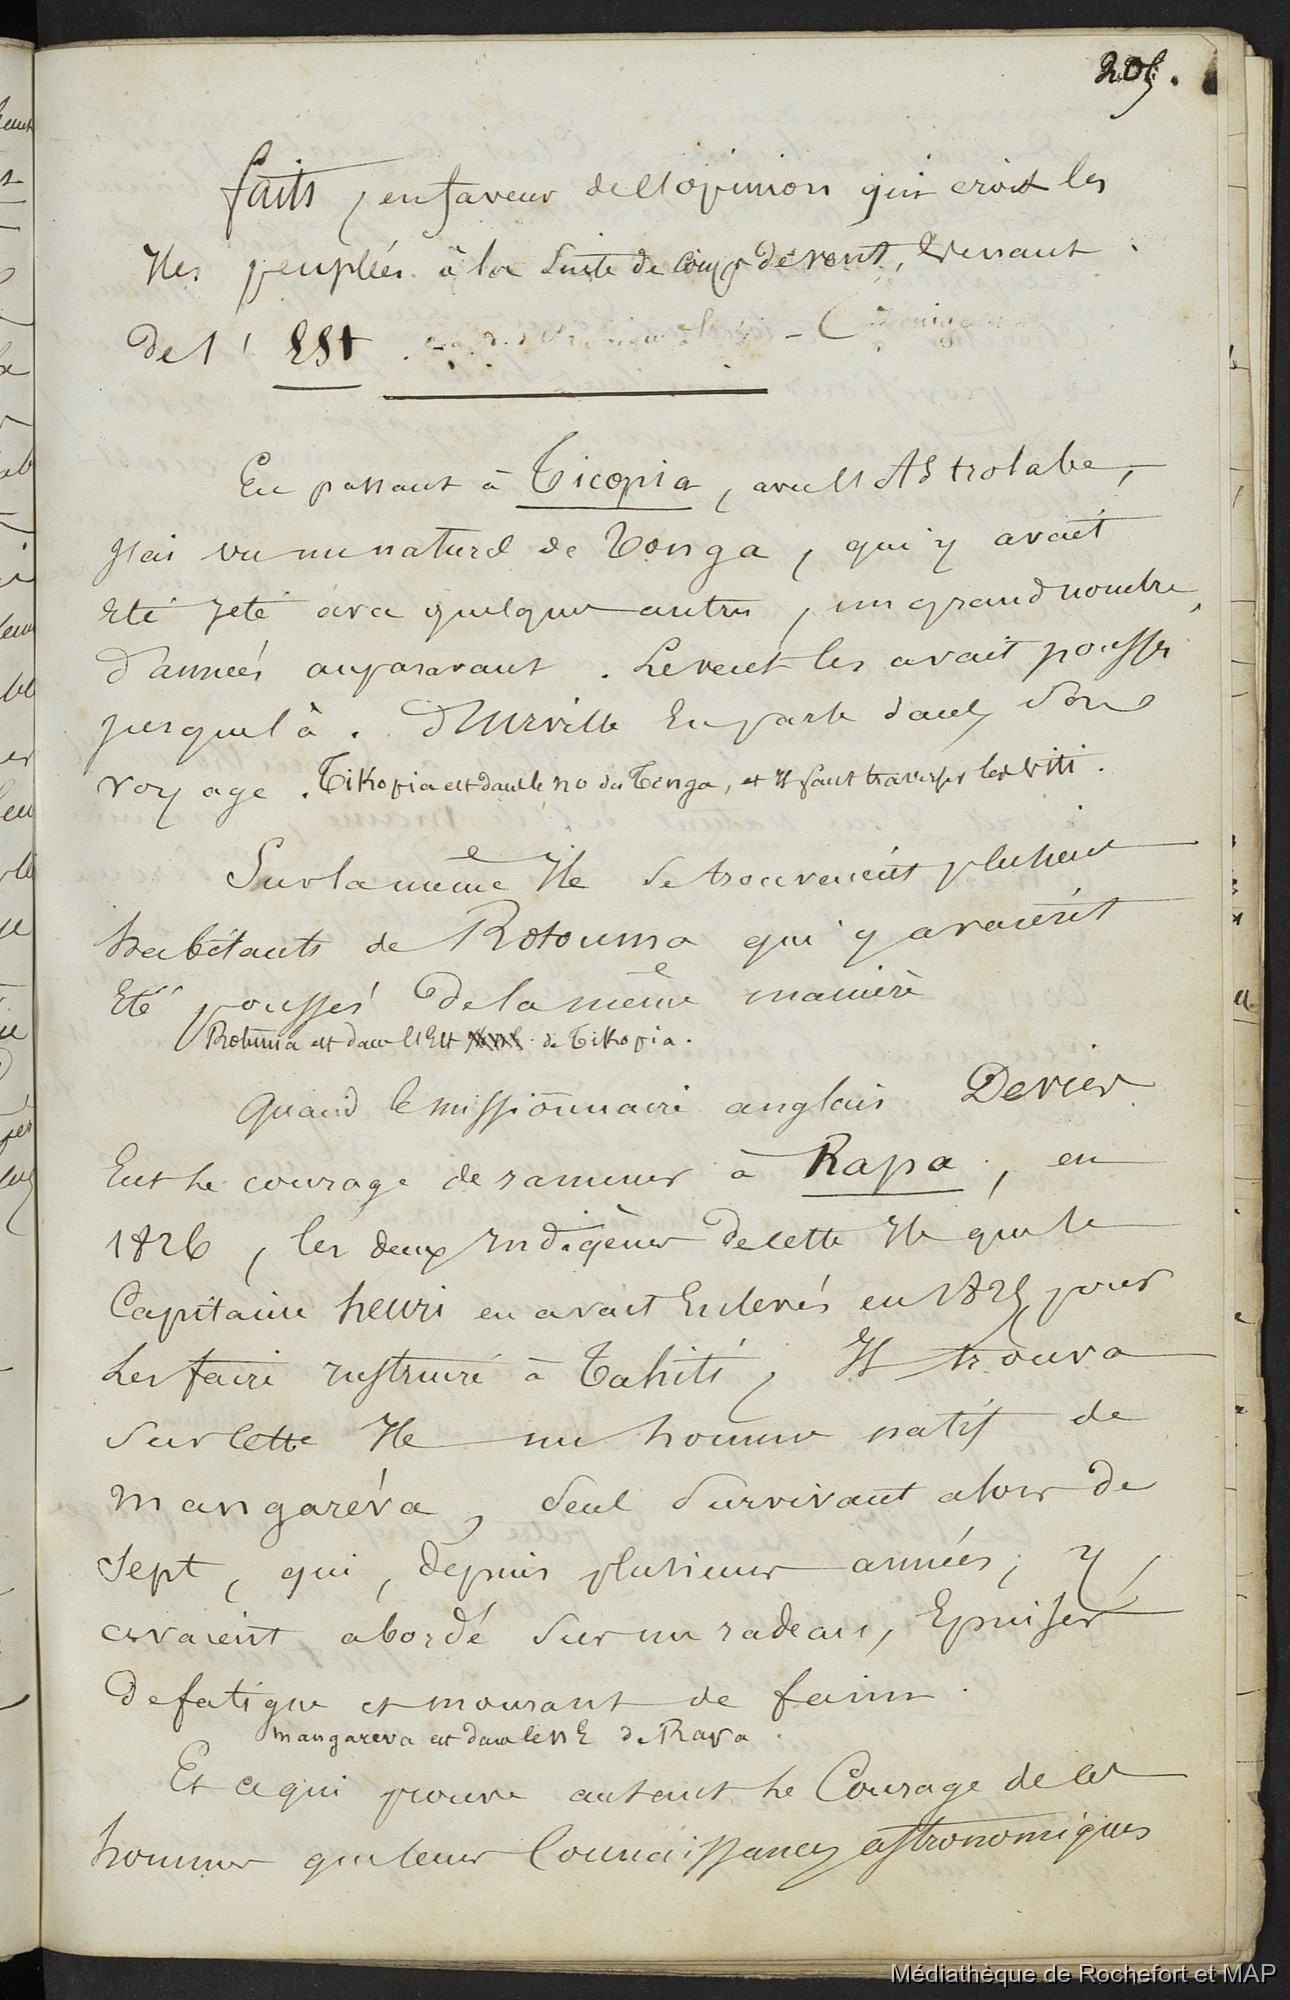 205.
faits, en faveur de l'opinion qui croit les
Iles peuplées à la suite de coups de vent, venant
de l' Est.
En passant à Ticopia, avec l'Astrolabe,
j'ai vu un naturel de Tonga, qui y avait
Eté jeté avec quelques autres, un grand nombre
d'années auparavant. Le vent les avait poussés
jusque là. d'Urville En parle dans Son
voyage. Tikopia est dans le no de Tonga, et Il faut traverser les Viti.
Sur la même Ile se trouvaient plusieurs
habitants de Rotouma qui y avaient
Eté poussés de la même manière
Rotuma est dans l'Est de Tikopia.
Quand le missionnaire anglais Devies
Eut le courage de ramener à Rapa, en
1826, les deux Indigènes de cette Ile que le
Capitaine henri en avait Enlevés en 1825 pour
les faire Instruire à Tahiti, Il trouva
sur cette Ile un homme natif de
mangaréva, seul survivant alors de
sept, qui, depuis plusieurs années, y
avaient abordé sur un radeau, Epuisés
de fatigue et mourant de faim.
mangareva est dans le n E de Rapa.
Et ce qui prouve autant le Courage de ces
hommes que leurs Connaissances astronomiques
Médiathèque de Rochefort et MAP